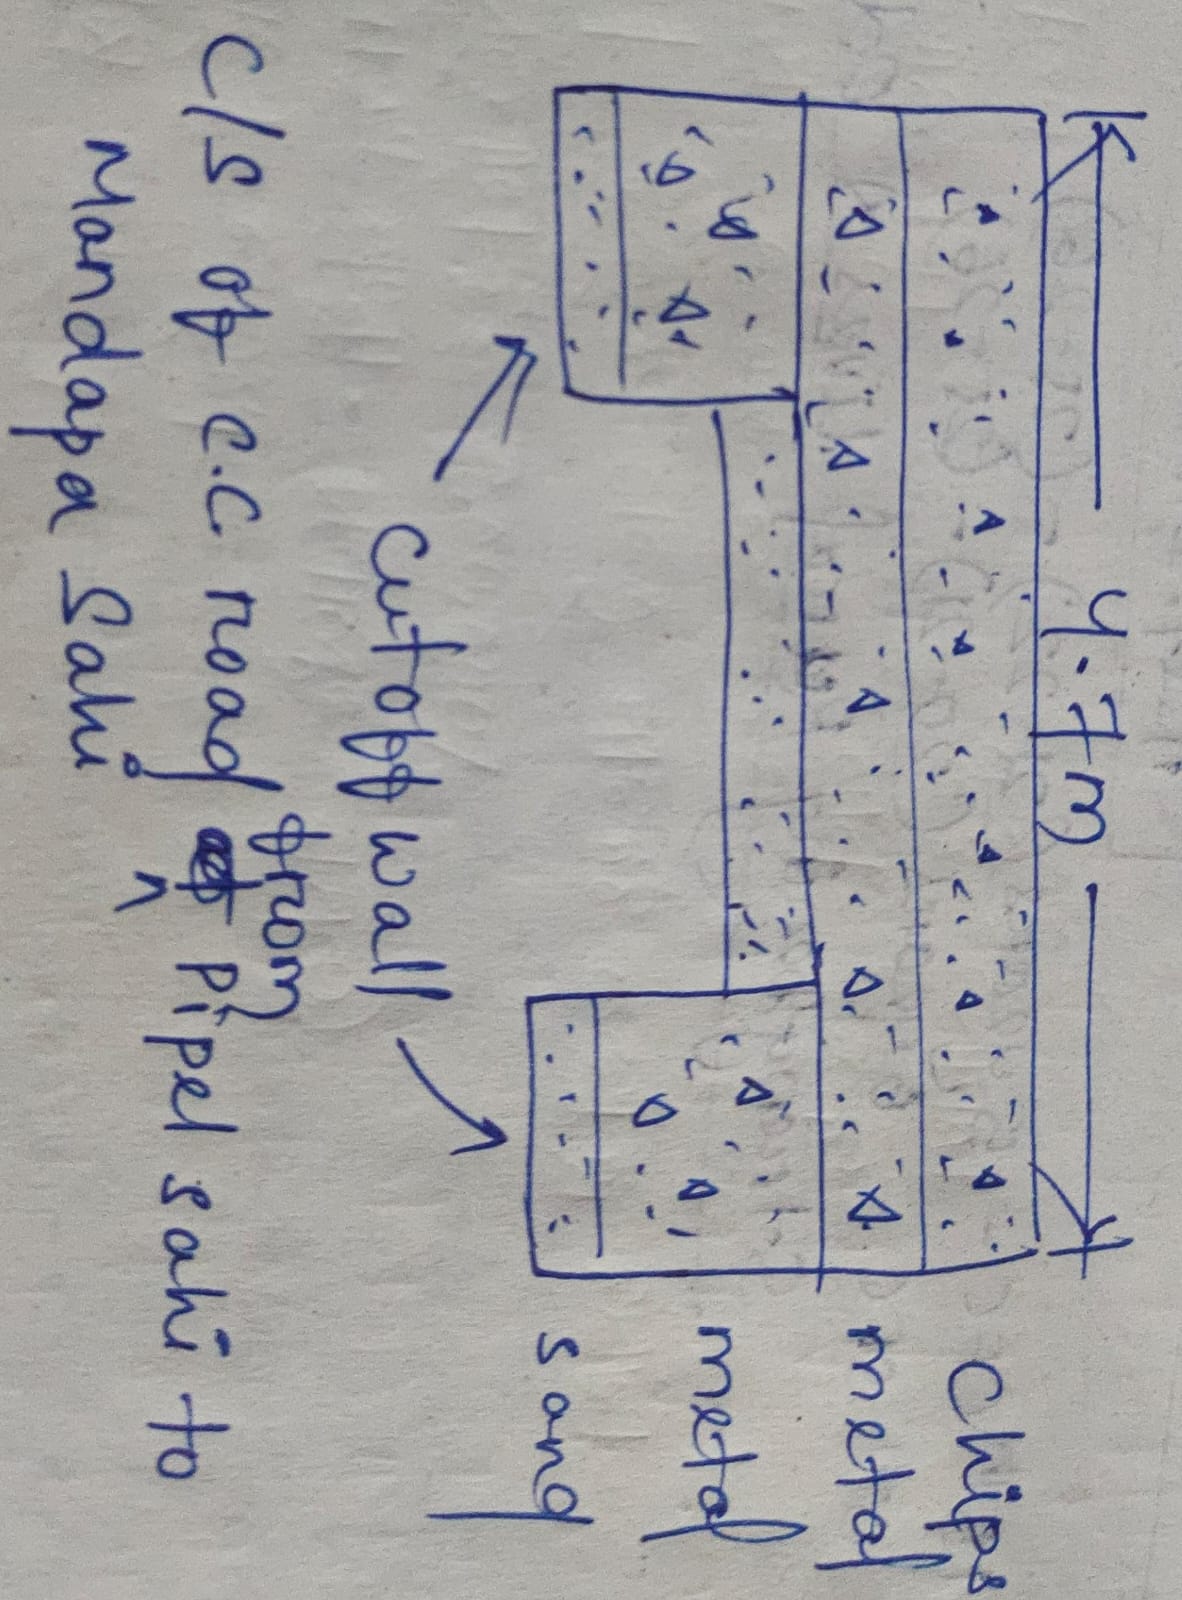 4.7m
Chips
metal
metal
sand
cutoff wall
from
C/s of c.c road Pipel sahi to
Mandapa Sahi